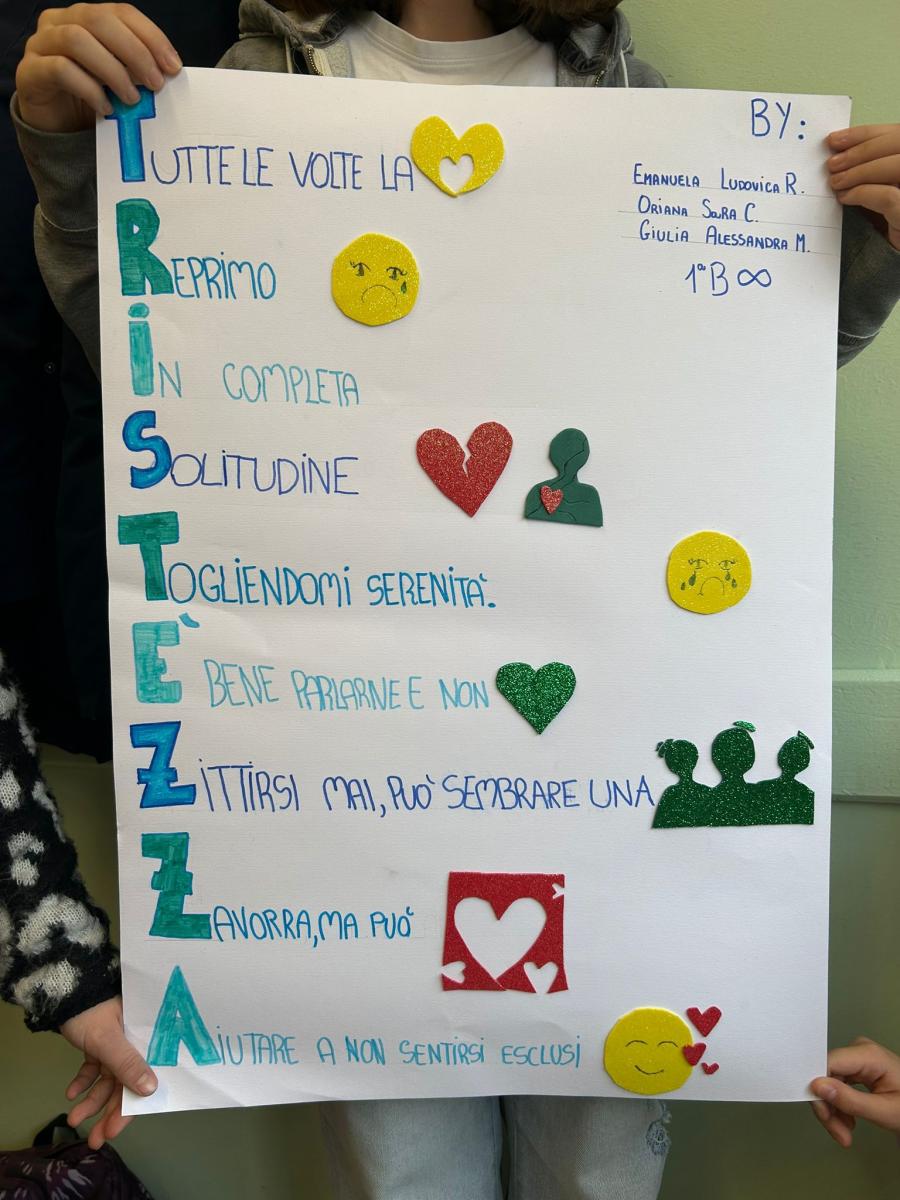 TUTTE LE VOLTE LA
BY:
EMANUELA LUDOVICA R.
ORIANA SARA C.
GIULIA ALESSANDRA M.
1ªB ∞
REPRIMO
IN COMPLETA
SOLITUDINE
TOGLIENDOMI SERENITA'.
È BENE PARLARNE E NON
ZITTIRSI MAI, PUO' SEMBRARE UNA
ZAVORRA, MA PUO'
AIUTARE A NON SENTIRSI ESCLUSI